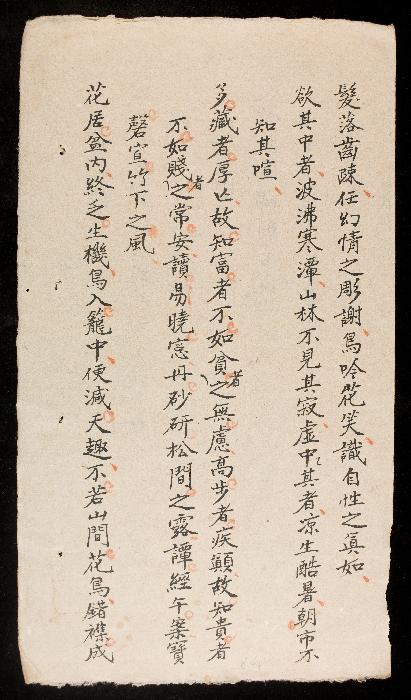 髮落齒疎任幻情之彫謝鳥吟花笑識自性之眞如
欲其中者波沸寒潭山林不見其寂虛中其者凉生酷暑朝市不
知其喧
多藏者厚亡故知富者不如貧者之無慮高步者疾顚故知貴者
不如賤者之常安讀易曉窓丹砂研松間之露譚經午案寶
磬宣竹下之風
花居盆内終乏生機鳥入籠中便減天趣不若山間花鳥錯襍成